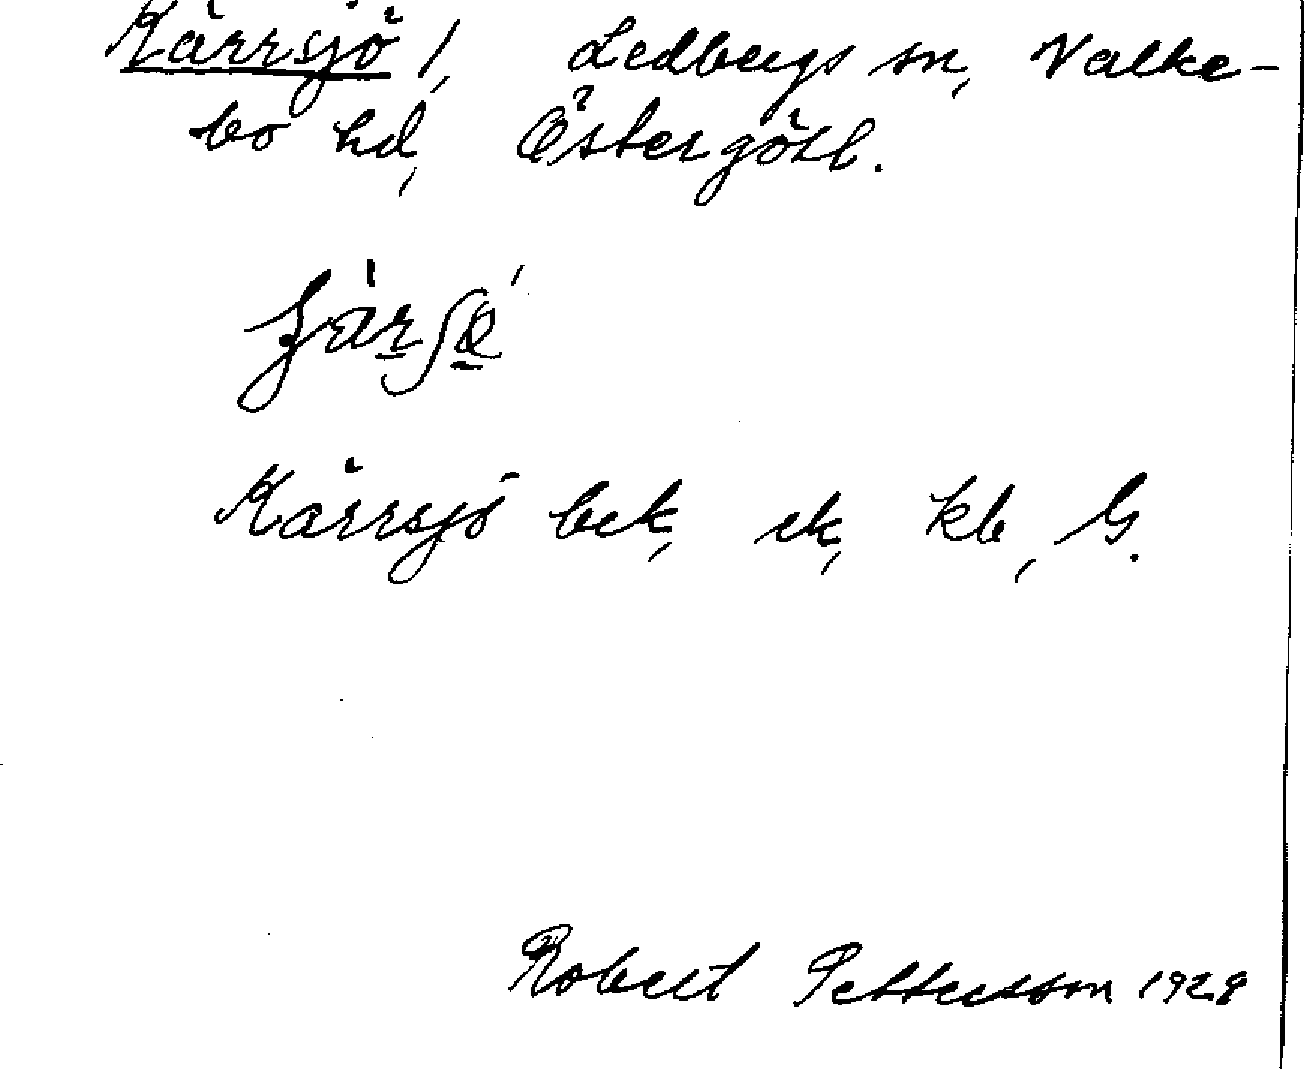 Kärrsjö /, Ledbergs sn, Valke-
bo hd, Östergötl.
Kärrsjö bek, ek, kb, G.
Robert Pettersson 1928